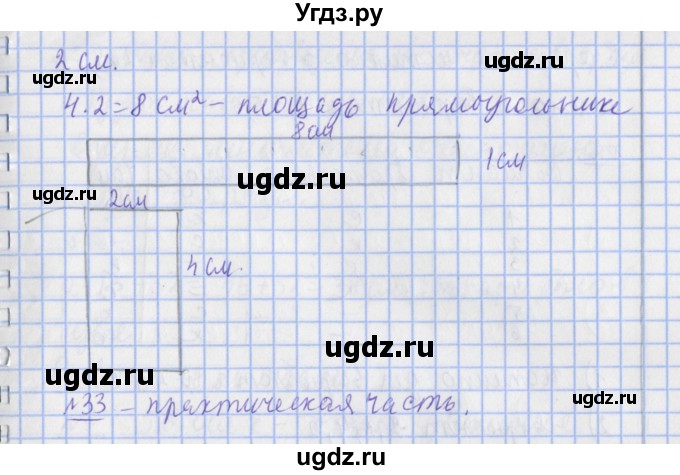 Угдз.ру
2 см.
ugdz.ru ugdz.ru
4·2=8 см² – площадь прямоугольника
8см
1см
ugdz.ru
ugdz.ru ugdz.ru
2см
4см.
ugdz.ru ugdz.ru
№33 – практическая часть.
ugdz.ru